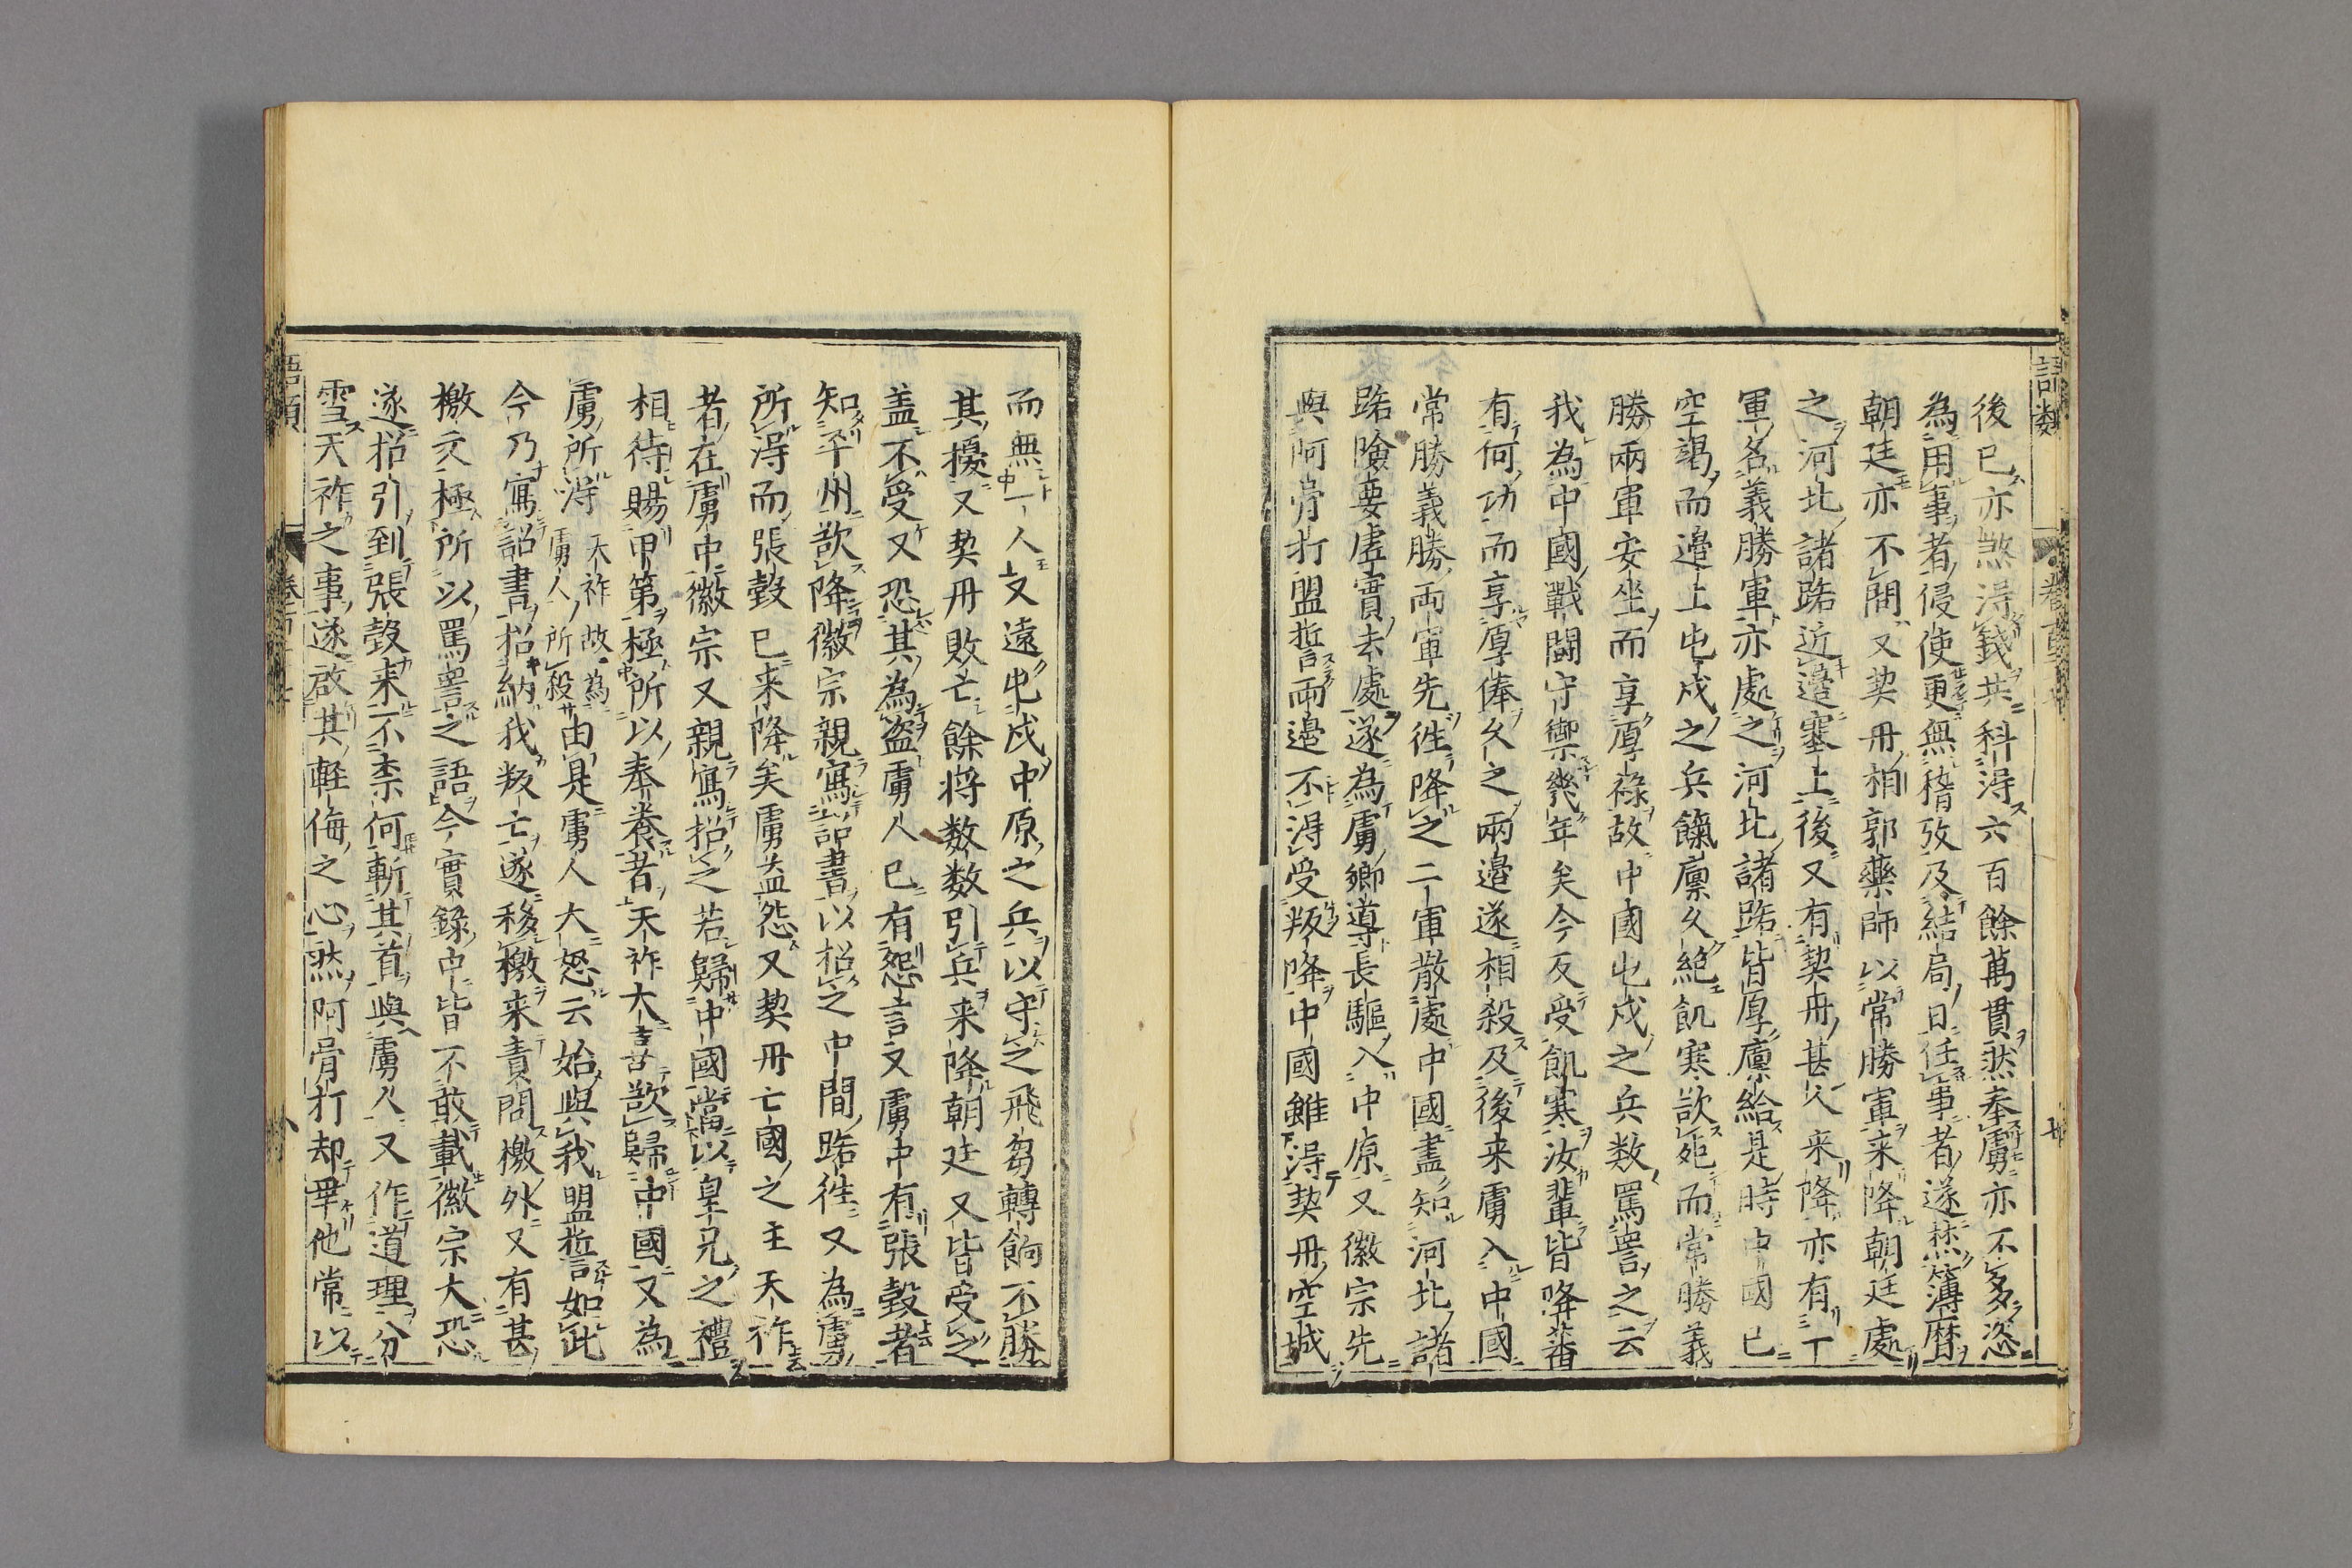 語類
卷百
後已亦煞得錢共科得六百餘萬貫然奉虜亦不多恣
為用事者侵使更無稽攷及結局日任事者遂焚簿曆
朝廷亦不問又契丹相郭藥師以常勝軍来降朝廷處
之河北諸路近邊塞上後又有契丹甚人来降亦有一
軍名義勝軍亦處之河北諸路皆厚廩給是時中國已
空竭而邊上屯戍之兵餼廩久絕飢寒欲死而常勝義
勝兩軍安坐而享厚祿故中國屯戍之兵数罵詈之云
我為中國戰鬪守禦幾年矣今反受飢寒汝輩皆降蕃
有何功而享厚俸久之兩邊遂相殺及後来虜入中國
常勝義勝兩軍先徃降之二軍散處中國盡知河北諸
路險要虛實去處遂為虜鄉導長驅入中原又徽宗先
與阿骨打盟誓兩邊不得受叛降中國雖得契丹空城
而無一人又遠屯戍中原之兵以守之飛芻轉餉不勝
其擾又契丹敗亡餘将数数引兵来降朝廷又皆受之
盖不受又恐其為盗虜人已有怨言又虜中有張瑴者
知平州欲降徽宗親寫詔書以招之中間路徃又為虜
所得而張瑴已来降矣虜益怨又契丹亡國之主天祚
者在虜中徽宗又親寫招之若歸中國當以皇兄之禮
相待賜甲第極所以奉養者天祚大喜欲歸中國又為
虜所得天祚故為虜人所殺由是虜人大怒云始與我盟誓如此
今乃寫詔書招納我叛亡遂移檄来責問檄外又有甚
檄文極所以罵詈之語今實錄中皆不敢載徽宗大恐
遂招引到張瑴来不柰何斬其首與虜人又作道理分
雪天祚之事遂啟其輕侮之心然阿骨打却畢他常以
語類